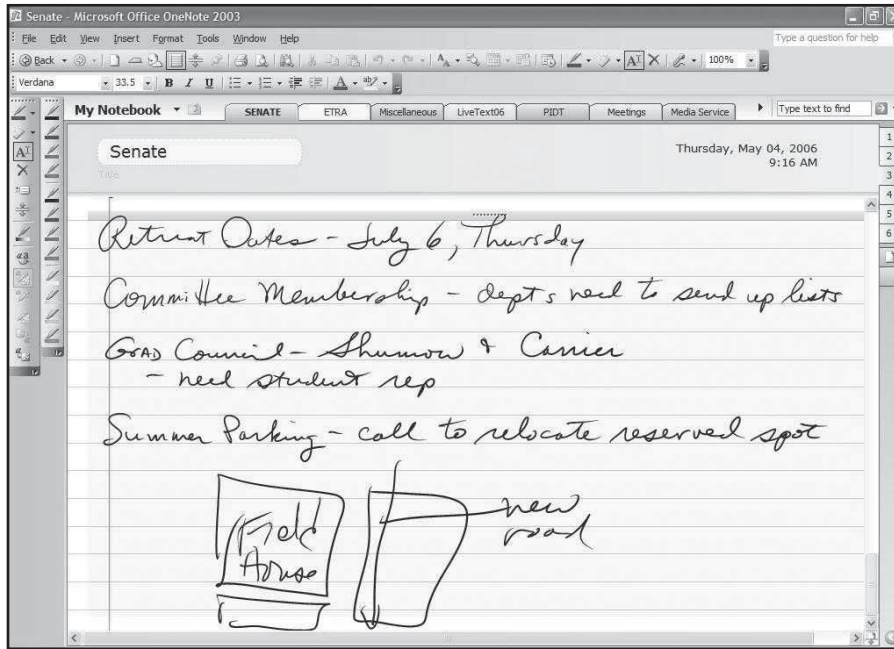 Senate - Microsoft Office OneNote 2003
File Edit View Insert Format Tools Window Help
Type a question for help
Back
100%
Verdana
33.5
B I U
My Notebook
SENATE
ETRA
Miscellaneous
LiveText06
PIDT
Meetings
Media Service
Type text to find
Senate
Title
Thursday, May 04, 2006
9:16 AM
1
2
3
4
5
6
Retreat Dates - July 6, Thursday
Committee Membership - dept s need to send up lists
GRAD Council - Shumow & Carrier
- need student rep
Summer Parking - call to relocate reserved spot
Field
House
new
road